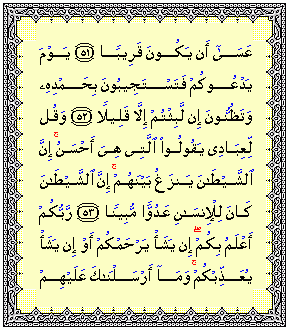 عَسَىٰٓ أَن يَكُونَ قَرِيبًا ﴿٥١﴾ يَوْمَ
يَدْعُوكُمْ فَتَسْتَجِيبُونَ بِحَمْدِهِۦ
وَتَظُنُّونَ إِن لَّبِثْتُمْ إِلَّا قَلِيلًا ﴿٥٢﴾ وَقُل
لِّعِبَادِى يَقُولُوا۟ ٱلَّتِى هِىَ أَحْسَنُ ۚ إِنَّ
ٱلشَّيْطَٰنَ يَنزَغُ بَيْنَهُمْ ۚ إِنَّ ٱلشَّيْطَٰنَ
كَانَ لِلْإِنسَٰنِ عَدُوًّا مُّبِينًا ﴿٥٣﴾ رَّبُّكُمْ
أَعْلَمُ بِكُمْ ۖ إِن يَشَأْ يَرْحَمْكُمْ أَوْ إِن يَشَأْ
يُعَذِّبْكُمْ ۚ وَمَآ أَرْسَلْنَٰكَ عَلَيْهِمْ